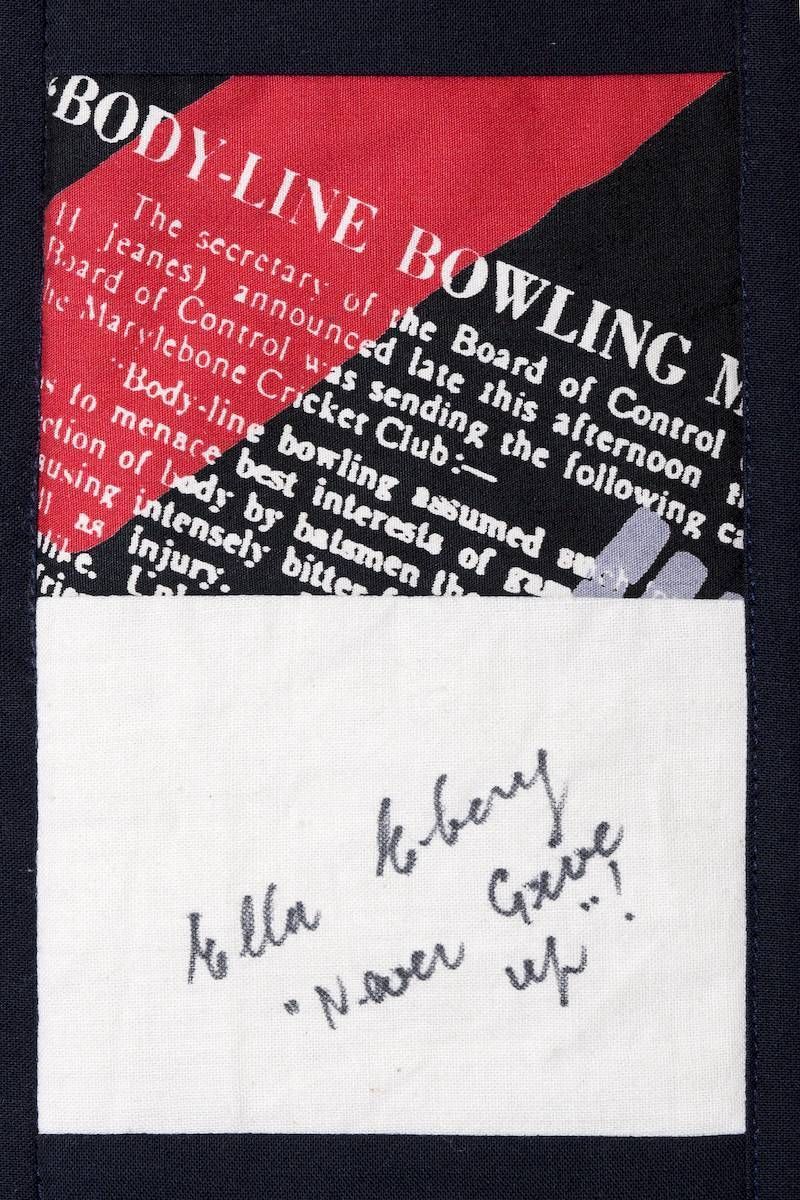 'BODY-LINE BOWLING M
The secretary of the Board of Control
H Jeanes) announced late this afternoon
Board of Control was sending the following ca
he Marylebone Cricket Club:—
"Body-line bowling assumed such
s to menace best interests of gam
ction of body by batsmen the
ausing intensely bitter
ll as injury.
like.
Ella Ebery
"Never Give
up"!